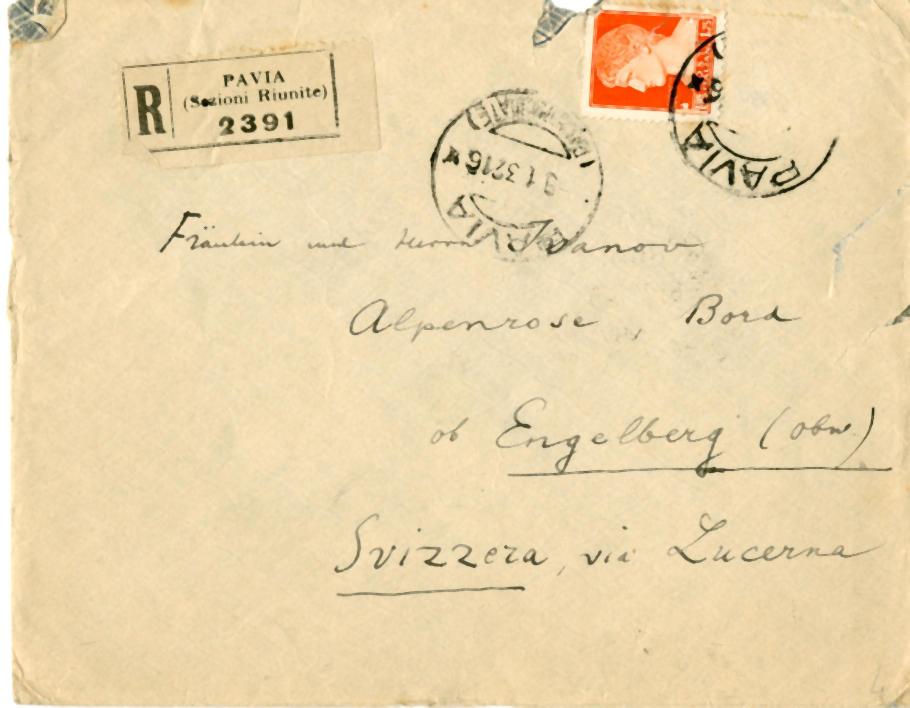 R
PAVIA
(Sezioni Riunite)
2391
PAVIA
1.32 16
PAVIA
Fräulein und Herrn Ivanov
Alpenrose, Bord
ob Engelberg (Obw.)
Svizzera, via Lucerna
4